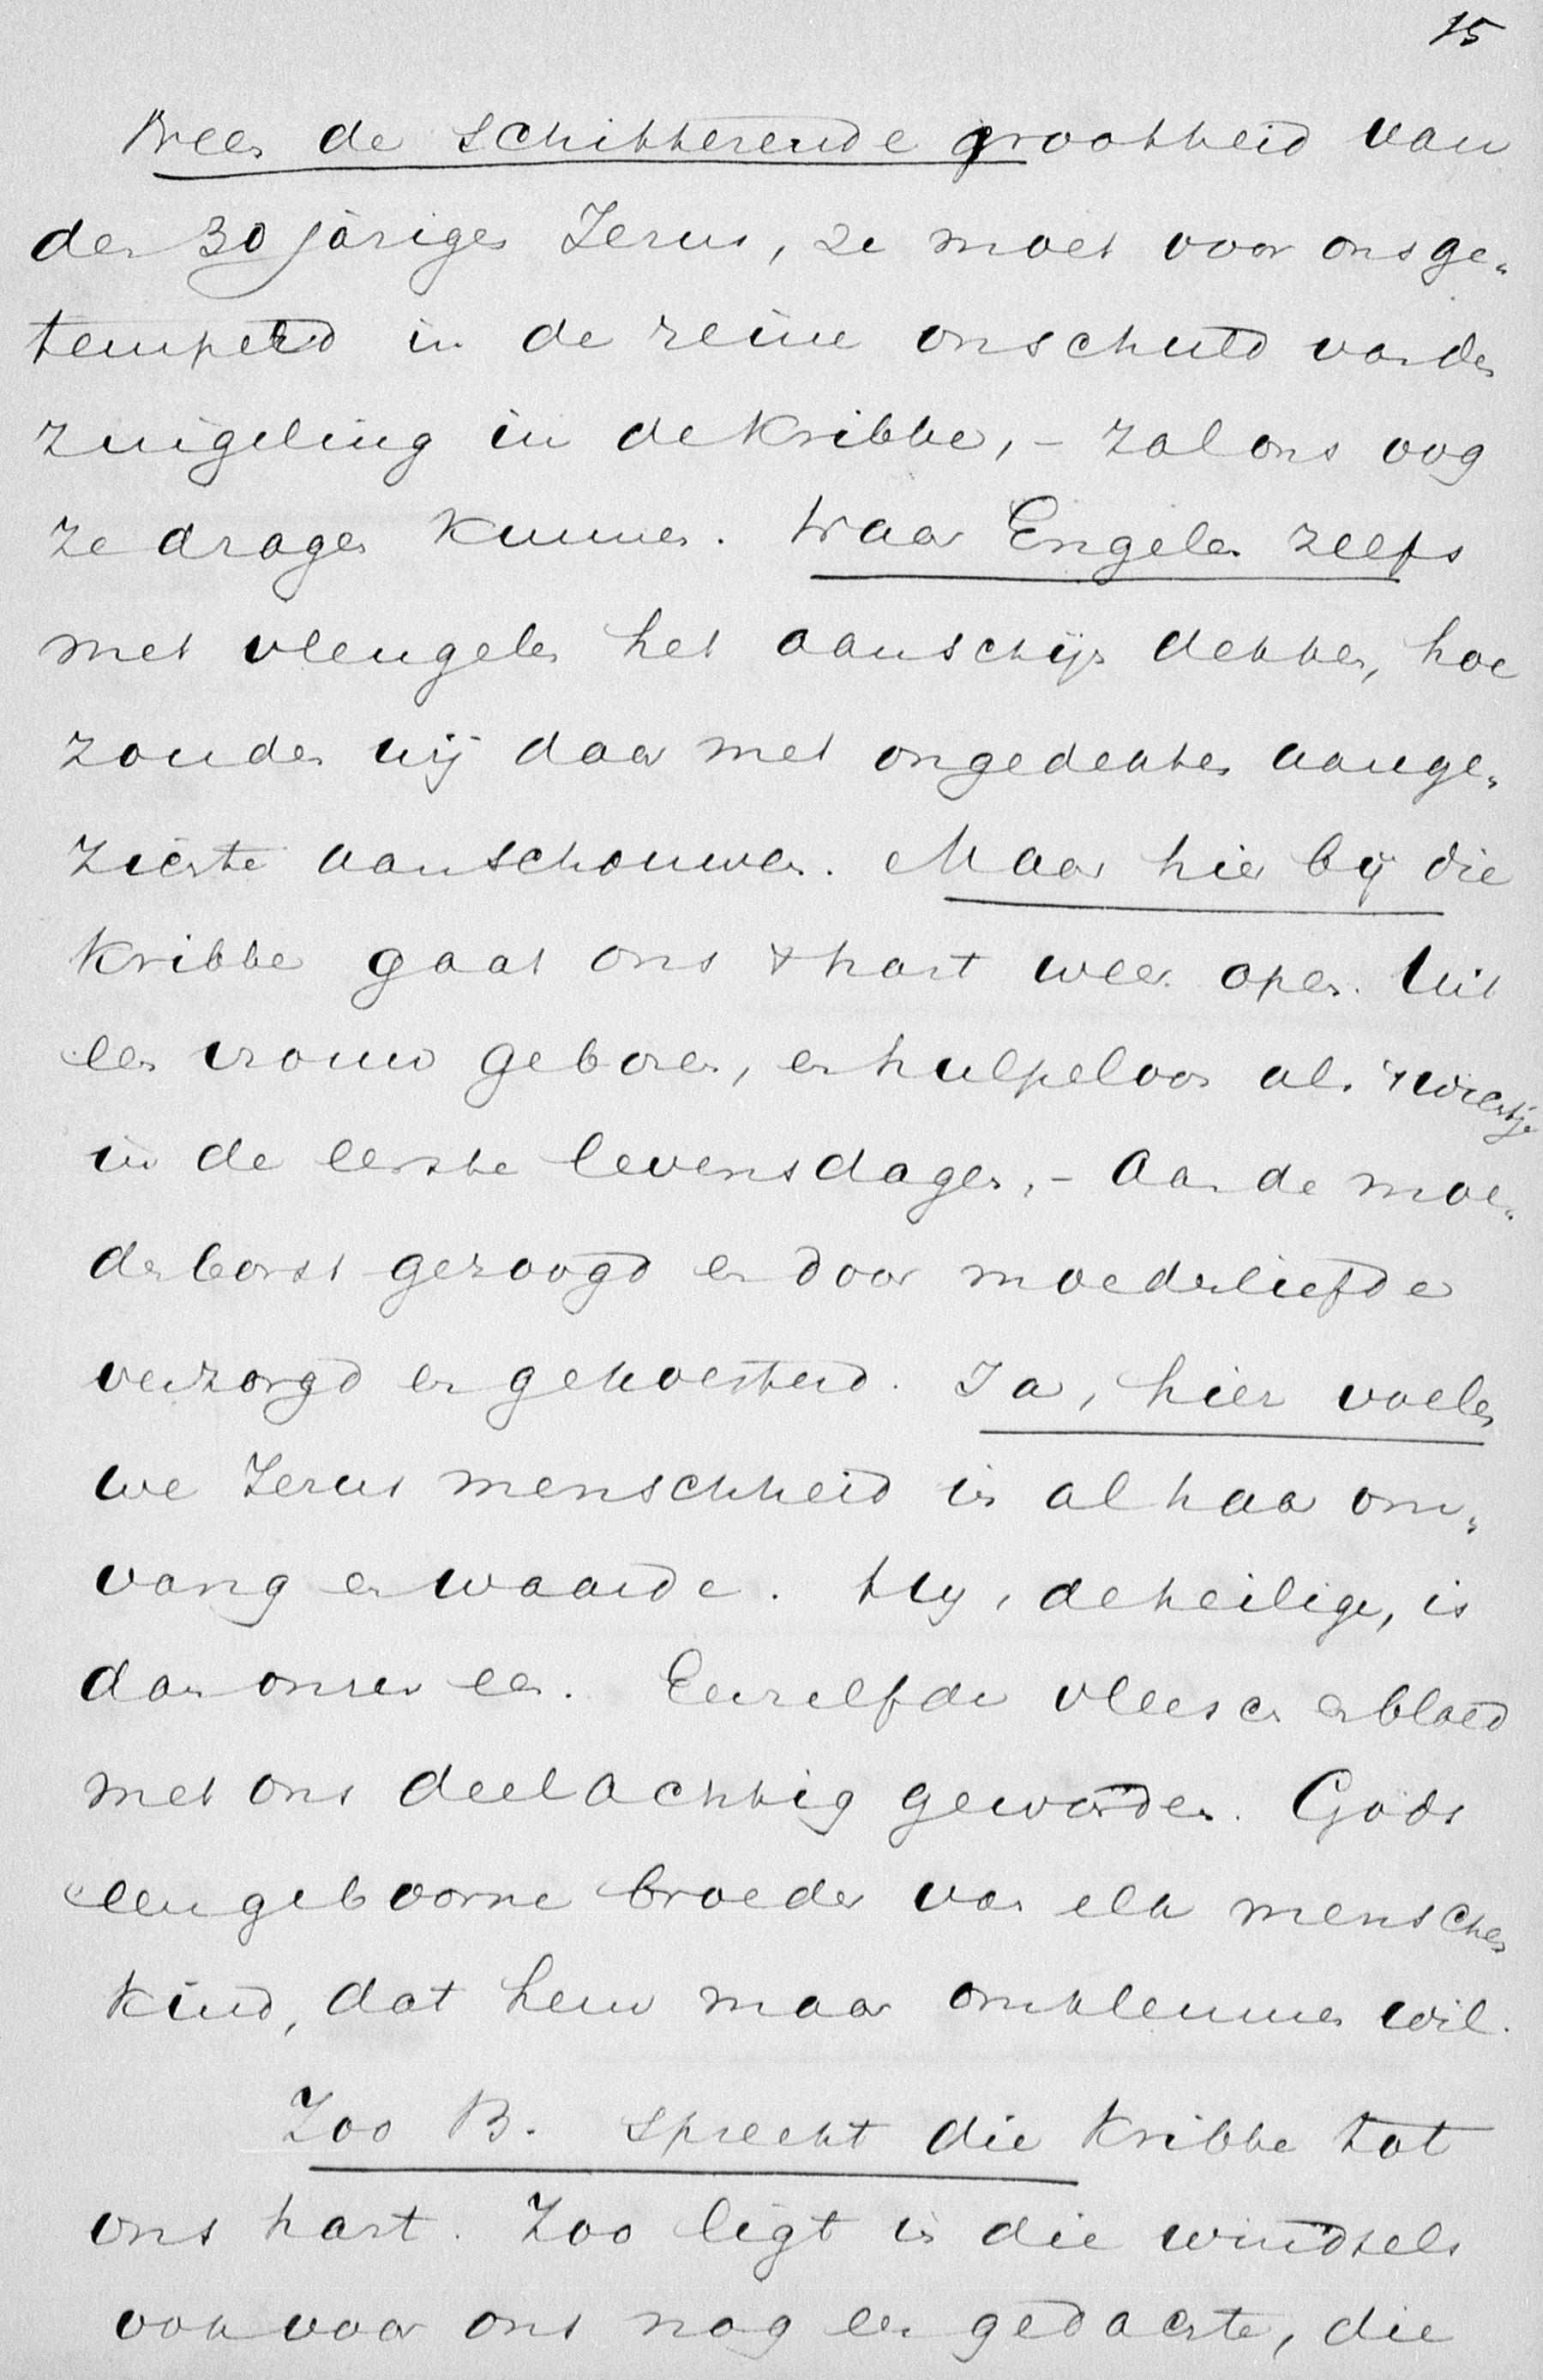 15
Neen de schitterende grootheid van
den 30 jarigen Jezus, ze moet voor ons ge-
temperd in de reine onschuld van den
zuigeling in de kribbe, – zal ons oog
ze dragen kunnen. Waar Engelen zelfs
met vleugelen het aanschijn dekken, hoe
zouden wij daar met ongedekten aange-
zichte aanschouwen. Maar hier bij die
kribbe gaat ons 't hart weer open. Uit
een vrouw geboren, en hulpeloos als 't wichtje
in de eerste levensdagen, – Aan de moe-
derborst gezoogd en door moederliefde
verzorgd en gekoesterd. Ja, hier voelen
we Jezus menschheid in al haar om-
vang en waarde. Hij, de heilige, is
dan onzer een. Eenzelfde vleesch en bloed
met ons deelachtig geworden. Gods
eengeboorne broeder van elk menschen
kind, dat hem maar omklemmen wil.
Zoo B. spreekt die kribbe tot
ons hart. Zoo ligt in die windsels
ook voor ons nog een gedachte, die